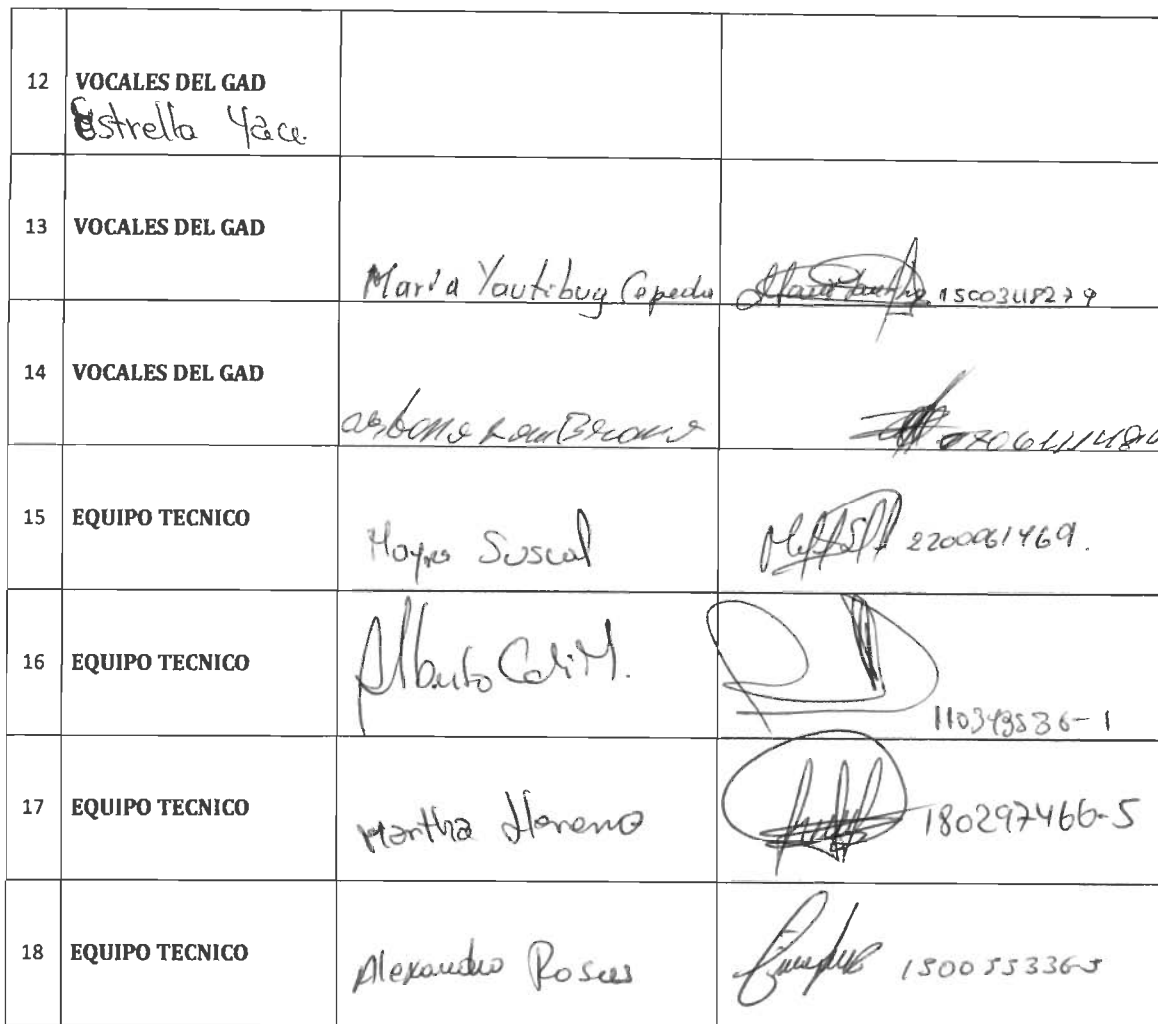 12 VOCALES DEL GAD
Estrella Yace.
13 VOCALES DEL GAD María Yautibug Cepeda 1500348279
14 VOCALES DEL GAD
15 EQUIPO TECNICO Mayra Suscal 2200061469.
16 EQUIPO TECNICO Alberto Cali M. 110349536-1
17 EQUIPO TECNICO Martha Moreno 180297466-5
18 EQUIPO TECNICO Alexandra Rosas 150055336-3